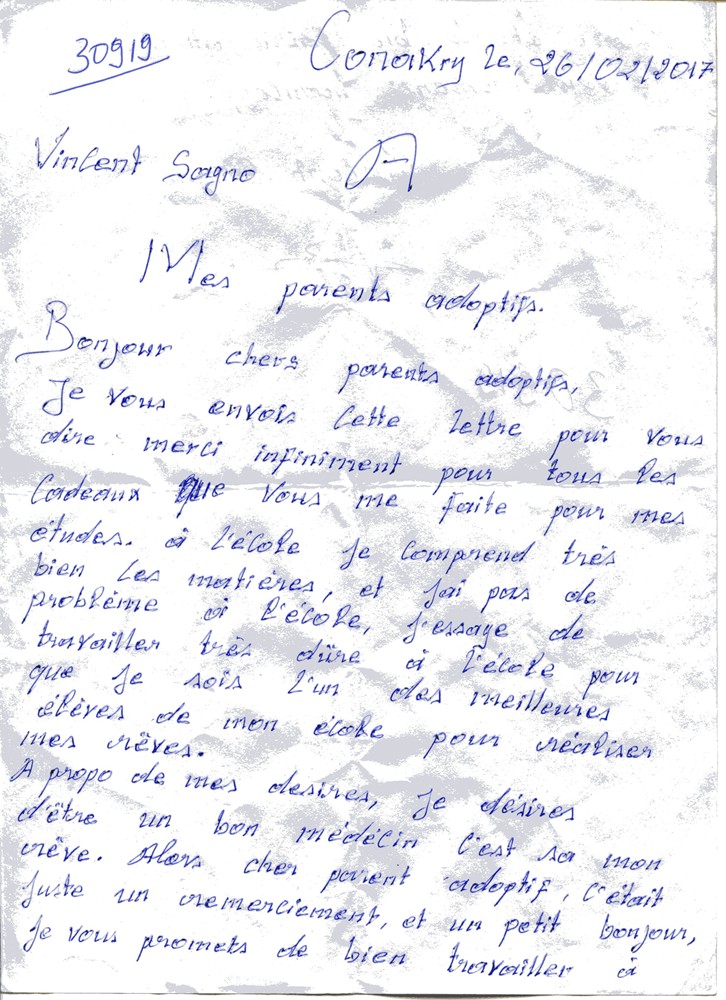 30919
Conakry le, 26/02/2017
Vincent Sagno
A
Mes parents adoptifs.
Bonjour chers parents adoptifs,
Je vous envois cette lettre pour vous
dire merci infiniment pour tous les
cadeaux que vous me faite pour mes
études. à l'école je comprend très
bien les matières, et j'ai pas de
problème à l'école, j'essaye de
travailler très dûre à l'école pour
que je sois l'un des meilleures
élèves de mon école pour réaliser
mes rêves.
A propo de mes desires, je désires
d'être un bon médécin c'est sa mon
rêve. Alors cher parent adoptif, c'était
juste un remerciement, et un petit bonjour,
je vous promets de bien travailler à